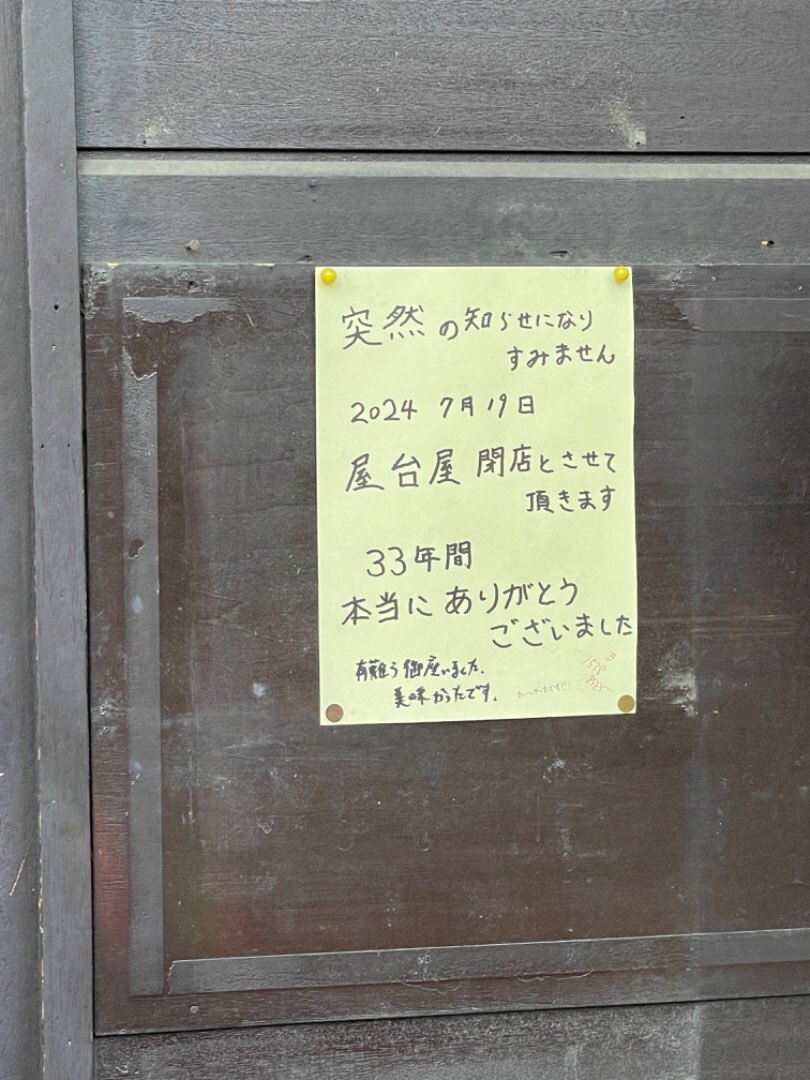 突然の知らせになり
すみません
2024 7月19日
屋台屋 閉店とさせて
頂きます
33年間
本当にありがとう
ございました
有難う御座いました。
美味かったです。
おいしかったです!!